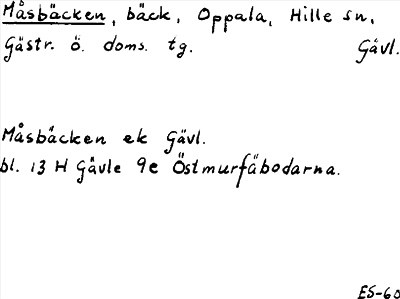 Måsbäcken, bäck, Oppala, Hille sn,
Gästr. ö. doms. tg. Gävl.
Måsbäcken ek Gävl.
bl. 13 H Gävle 9e Östmurfäbodarna.
ES-60